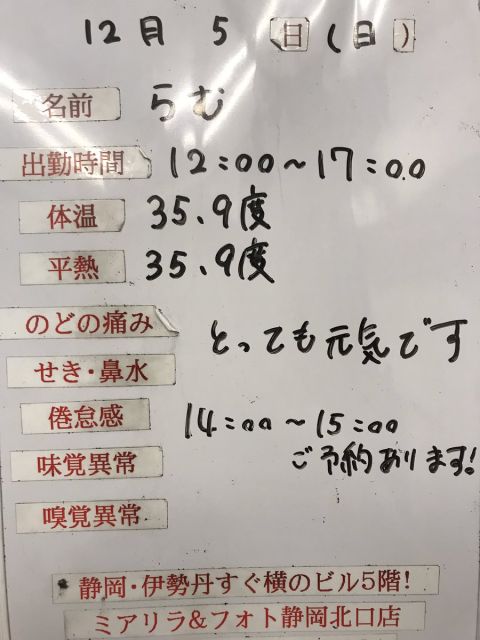 12月 5日(日)
名前 らむ
出勤時間 12:00~17:00
体温 35.9度
平熱 35.9度
のどの痛み
とっても元気です
せき・鼻水
倦怠感 14:00~15:00
味覚異常 ご予約あります!
嗅覚異常
静岡・伊勢丹すぐ横のビル5階!
ミアリラ&フォト静岡北口店